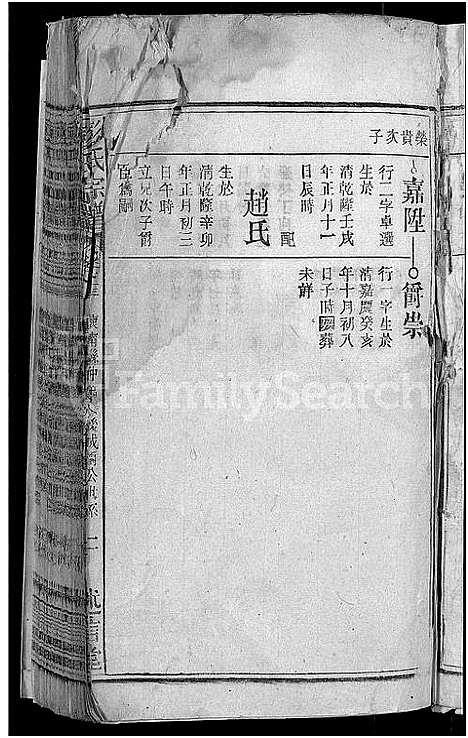 榮貴次子
嘉陞
行二字卓選
生於
清乾隆壬戌
年正月十一
日辰時
配
趙氏
生於
清乾隆辛卯
年正月初三
日午時
立兄次子爵
崇為嗣
爵崇
行一字生於
清嘉慶癸亥
年十月初八
日子時
葬
未詳
氏宗譜
二
述古堂
FamilySearch